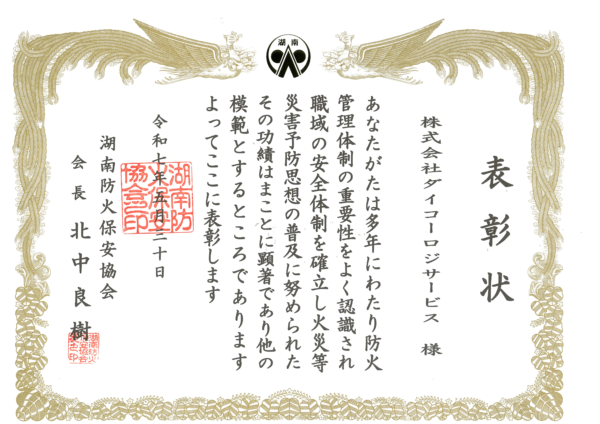 湖南
表彰状
株式会社ダイコーロジサービス 様
あなたがたは多年にわたり防火
管理体制の重要性をよく認識され
職域の安全体制を確立し火災等
災害予防思想の普及に努められた
その功績はまことに顕著であり他の
模範とするところであります
よってここに表彰します
令和七年五月三十日
湖南防火保安協会
会長 北中良樹
湖南防
火保安
協会印